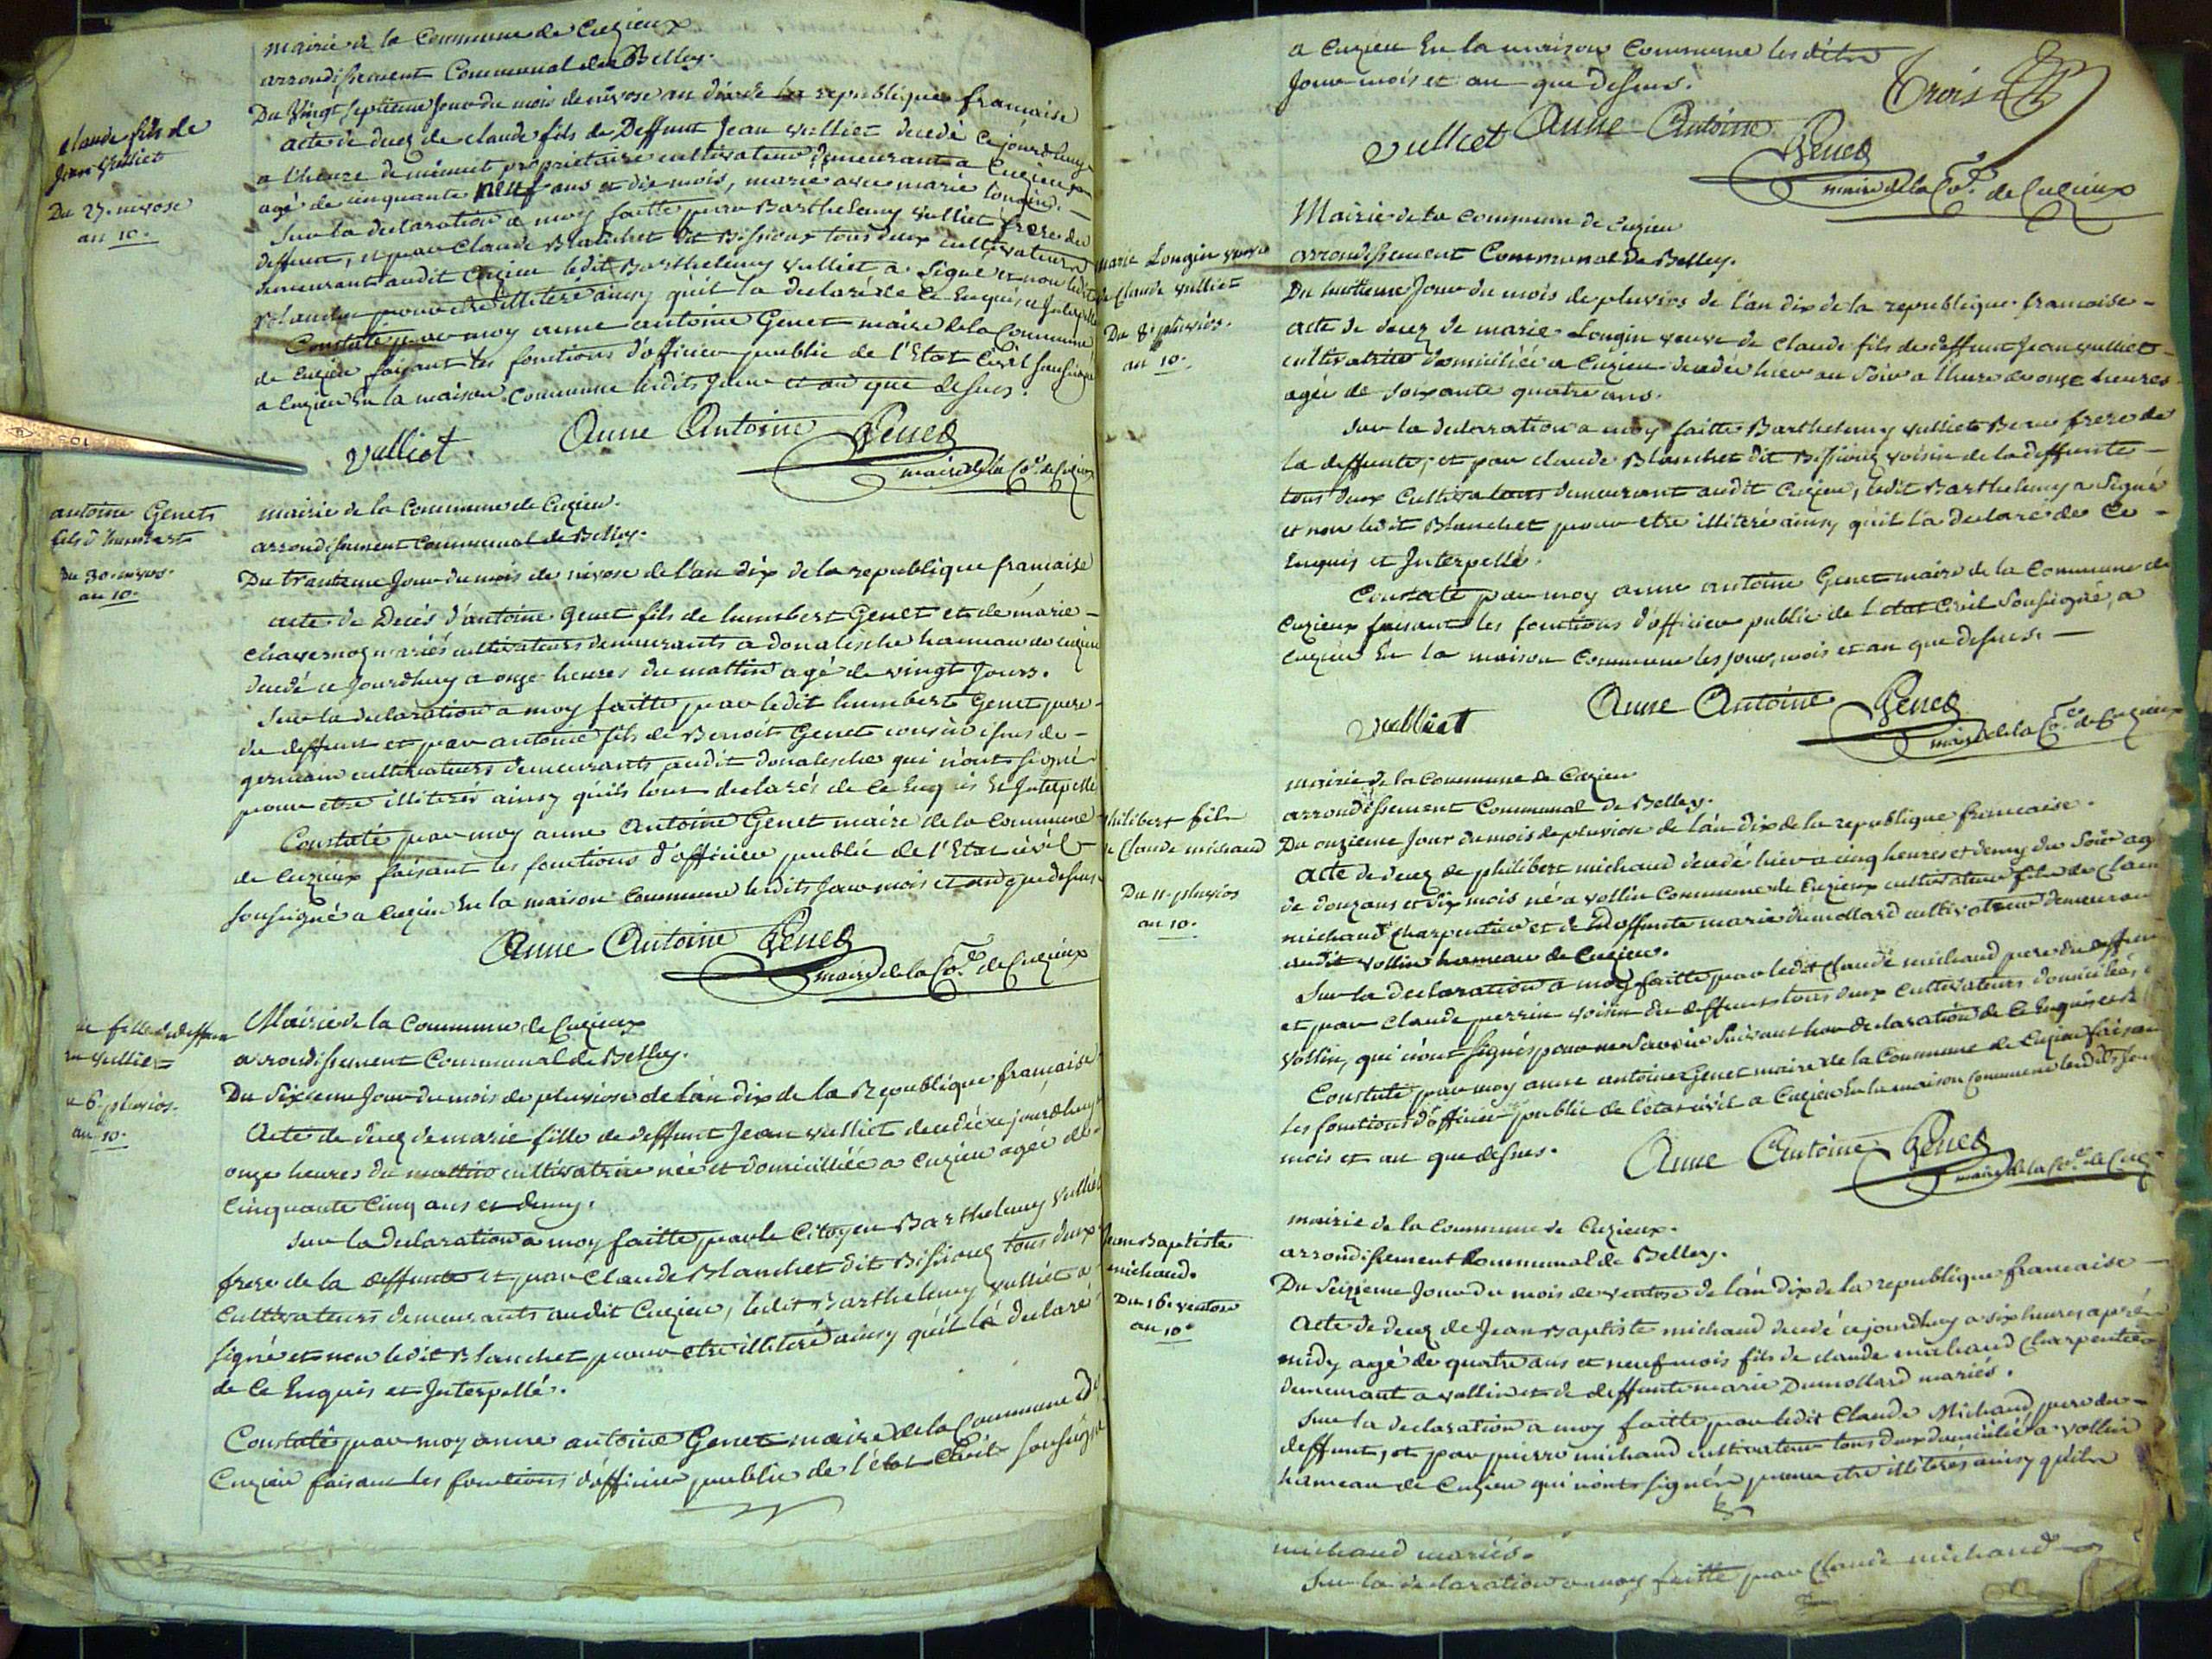 mairie de la Commune de Cuzieux
arrondissement Communal de Belley.
Du Vingt septieme Jour du mois de nivose an dix de la republique francaise
claude fils de
Jean Vulliet
Du 27. nivose
an 10.
acte de decez de claude fils de Deffunt Jean vulliet decedé cejourdhuy
a lheure de minuit propriétaire cultivateur demeurant a Cuzieux
agé de cinquante neuf ans et dix mois, marié avec marie longin. —
Sur la declaration a moy faitte par Barthelemy vulliet frere du
deffunt, et par Claude Blanchet dit Bissioux tous deux cultivateurs
demeurant audit Cuzieu ledit Barthelemy vulliet a signé et non ledit
Blanchet pour etre illiteré ainsy qu'il la declaré de ce Enquis et Interpellé
Constaté par moy anne antoine Genet maire de la Commune
de Cuzieu faisant les fonctions d'officier public de l'Etat Civil soussigné
a Cuzieu En la maison Commune lesdits Jour et an que dessus.
vulliet
Anne Antoine Genet
maire de la Co.e de Cuzieux
antoine Genet
fils d'humbert
Du 30. nivos.
an 10.
mairie de la Commune de Cuzieu.
arrondissement Communal de Belley.
Du trantieme Jour du mois de nivose de l'an dix de la republique francaise
acte de Decés d'antoine Genet fils de humbert Genet et de marie —
chavernoz mariés cultivateurs demeurants a donalesche hameau de cuzieu
decedé ce Jourdhuy a onze heures du mattin agé de vingt Jours.
Sur la declaration a moy faitte par ledit humbert Genet pere
du deffunt et par antoine fils de Benoit Genet cousin issus de —
germain cultivateurs demeurants audit donalesche qui n'ont signé
pour etre illiterés ainsy qu'ils lont declarés de ce Enquis et Interpellé
Constaté par moy anne Antoine Genet maire de la Commune
de Cuzieux faisant les fonctions d'officier public de l'Etat civil
soussigné a Cuzieu En la maison Commune lesdits Jour mois et an que dessus
Anne Antoine Genet
maire de la Co.e de Cuzieux
fille du deffunt
vulliet
6. pluvios.
an 10.
Mairie de la Commune de Cuzieux
arrondissement Communal de Belley.
Du Sixieme Jour du mois de pluviose de l'an dix de la Republique francaise
Acte de decez de marie fille de deffunt Jean vulliet decedée cejourdhuy
onze heures du mattin cultivatrice née et domiciliée a Cuzieu agée de
Cinquante Cinq ans et demy.
Sur la declaration a moy faitte par le Citoyen Barthelemy Vulliet
frere de la deffunte et par Claude Blanchet dit Bissioux tous deux
Cultivateurs demeurants audit Cuzieu, ledit Barthelemy vulliet a
signé et non ledit Blanchet pour etre illiteré ainsy qu'il la declaré
de ce Enquis et Interpellé.
Constaté par moy anne antoine Genet maire de la Commune de
Cuzieu faisant les fonctions d'officier public de l'état Civil soussigné
a Cuzieu En la maison Commune lesdits
Jour mois et an que dessus.
Trois
vulliet
Anne Antoine Genet
maire de la Co.e de Cuzieux
marie Longin veuve
de Claude vulliet
Du 8. pluvios.
an 10.
Mairie de la Commune de Cuzieu
arrondissement Communal de Belley.
Du huitieme Jour du mois de pluvios de l'an dix de la republique francaise —
acte de decez de marie Longin veuve de Claude fils de deffunt Jean vulliet —
cultivatrice domiciliée a Cuzieu decedée hier au soir a lheure de onze heures
agée de soixante quatre ans.
Sur la declaration a moy faitte Barthelemy vulliet Beau frere de
la deffunte, et par claude Blanchet dit Bissioux voisin de la deffunte —
tous deux Cultivateurs demeurant audit Cuzieu, ledit Barthelemy a signé
et non ledit Blanchet pour etre illiteré ainsy qu'il l'a declaré de ce —
Enquis et Interpellé.
Constaté par moy anne antoine Genet maire de la Commune de
Cuzieux faisant les fonctions d'officier public de l'etat Civil soussigné, a
Cuzieu En la maison Commune les jour, mois et an que dessus. —
vulliet
Anne Antoine Genet
maire de la Co.e de Cuzieux
philibert fils
de Claude michaud
Du 11. pluvios
an 10.
mairie de la Commune de Cuzieu
arrondissement Communal de Belley.
Du onzieme Jour du mois de pluviose de l'an dix de la republique francaise.
Acte de decez de philibert michaud decedé hier a cinq heures et demy du soir agé
de douze ans et dix mois né a vollin Commune de Cuzieux cultivateur fils de Claude
michaud Charpentier et de deffunte marie dumollard cultivateur demeurant
audit vollin hameau de Cuzieu.
Sur la declaration a moy faitte par ledit Claude michaud pere du deffunt
et par Claude perrin voisin du deffunt tous deux Cultivateurs domiciliés a
Vollin, qui n'ont signés pour ne savoir suivant leur declaration de ce Enquis et
Constaté par moy anne antoine Genet maire de la Commune de Cuzieu faisant
les fonctions d'officier public de l'état civil a Cuzieu En la maison Commune lesdits Jour
mois et an que dessus.
Anne Antoine Genet
maire de la Co.e de Cuz
Jean Baptiste
michaud.
Du 16. ventose
an 10.
mairie de la Commune de Cuzieux.
arrondissement Communal de Belley.
Du Seizieme Jour du mois de ventose de l'an dix de la republique francaise —
Acte de decez de Jean Baptiste michaud decedé cejourdhuy a six heures après
midy agé de quatre ans et neuf mois fils de claude michaud Charpentier
demeurant a vollin et de deffunte marie Dumollard mariés.
Sur la declaration a moy faitte par ledit Claude Michaud pere du —
deffunt, et par pierre michaud cultivateur tous deux domicilié a vollin
hameau de Cuzieu qui n'ont signér pour etre illiterés ainsy qu'ils
michaud mariés.
Sur la declaration a moy faitte par Claude michaud